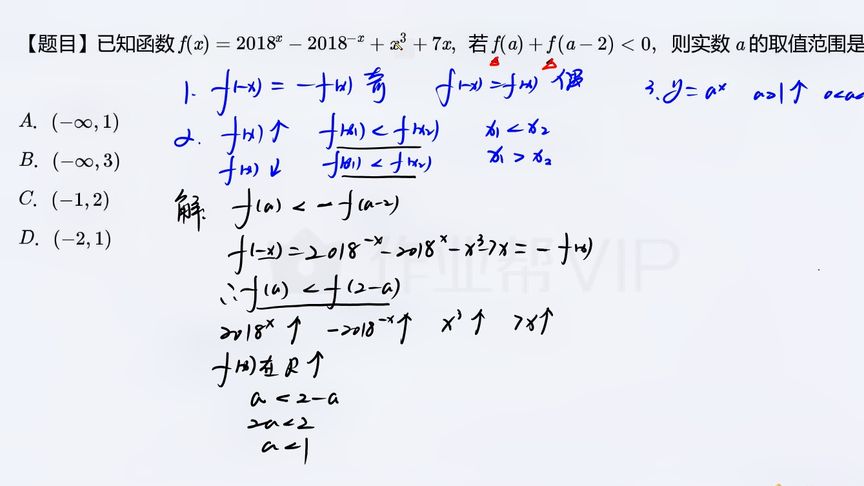 【题目】已知函数f(x) = 2018^x − 2018^{−x} + x^3 + 7x, 若f(a) + f(a − 2) < 0, 则实数a的取值范围是
1. f(-x) = -f(x) 奇 f(-x) = f(x) 偶 3. y = a^x a>1↑ 0<a<
A. (−∞, 1)
2. f(x)↑ f(x₁) < f(x₂) x₁ < x₂
B. (−∞, 3)
f(x)↓ f(x₁) < f(x₂) x₁ > x₂
C. (−1, 2)
解: f(a) < -f(a-2)
D. (−2, 1)
f(-x) = 2018^{-x} - 2018^x - x^3 - 7x = -f(x)
∴ f(a) < f(2-a)
2018^x ↑ -2018^{-x} ↑ x^3 ↑ 7x↑
f(x)在R↑
a < 2-a
2a < 2
a < 1
作业帮VIP